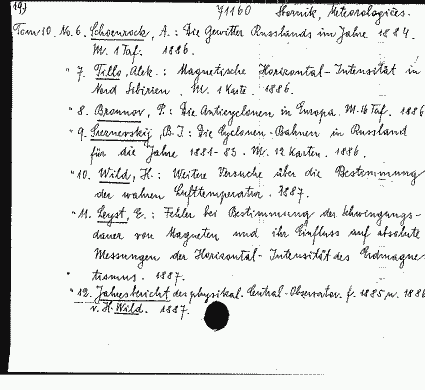 19)
71160 Sbornik, Meteorologičes.
Tom 10. No. 6. Schoenrock, A.: Die Gewitter Russlands im Jahre 1884.
M. 1 Taf. 1886.
" 7. Tillo, Alex.: Magnetische Horizontal-Intensität in
Nord Sibirien. M. 1 Karte. 1886.
" 8. Brounov, P.: Die Anticyclonen in Europa. M. 16 Taf. 1886
" 9. Sreznevskij, B. J.: Die Cyclonen-Bahnen in Russland
für die Jahre 1881-83. M. 12 Karten. 1886.
" 10. Wild, H.: Weitere Versuche über die Bestimmung
der wahren Lufttemperatur. 1887.
" 11. Leyst, E.: Fehler bei Bestimmung der Schwingungs-
dauer von Magneten und ihr Einfluss auf absolute
Messungen der Horizontal-Intensität des Erdmagne-
" tismus. 1887.
" 12. Jahresbericht des physikal. Central-Observator. f. 1885 u. 1886
v. H. Wild. 1887.